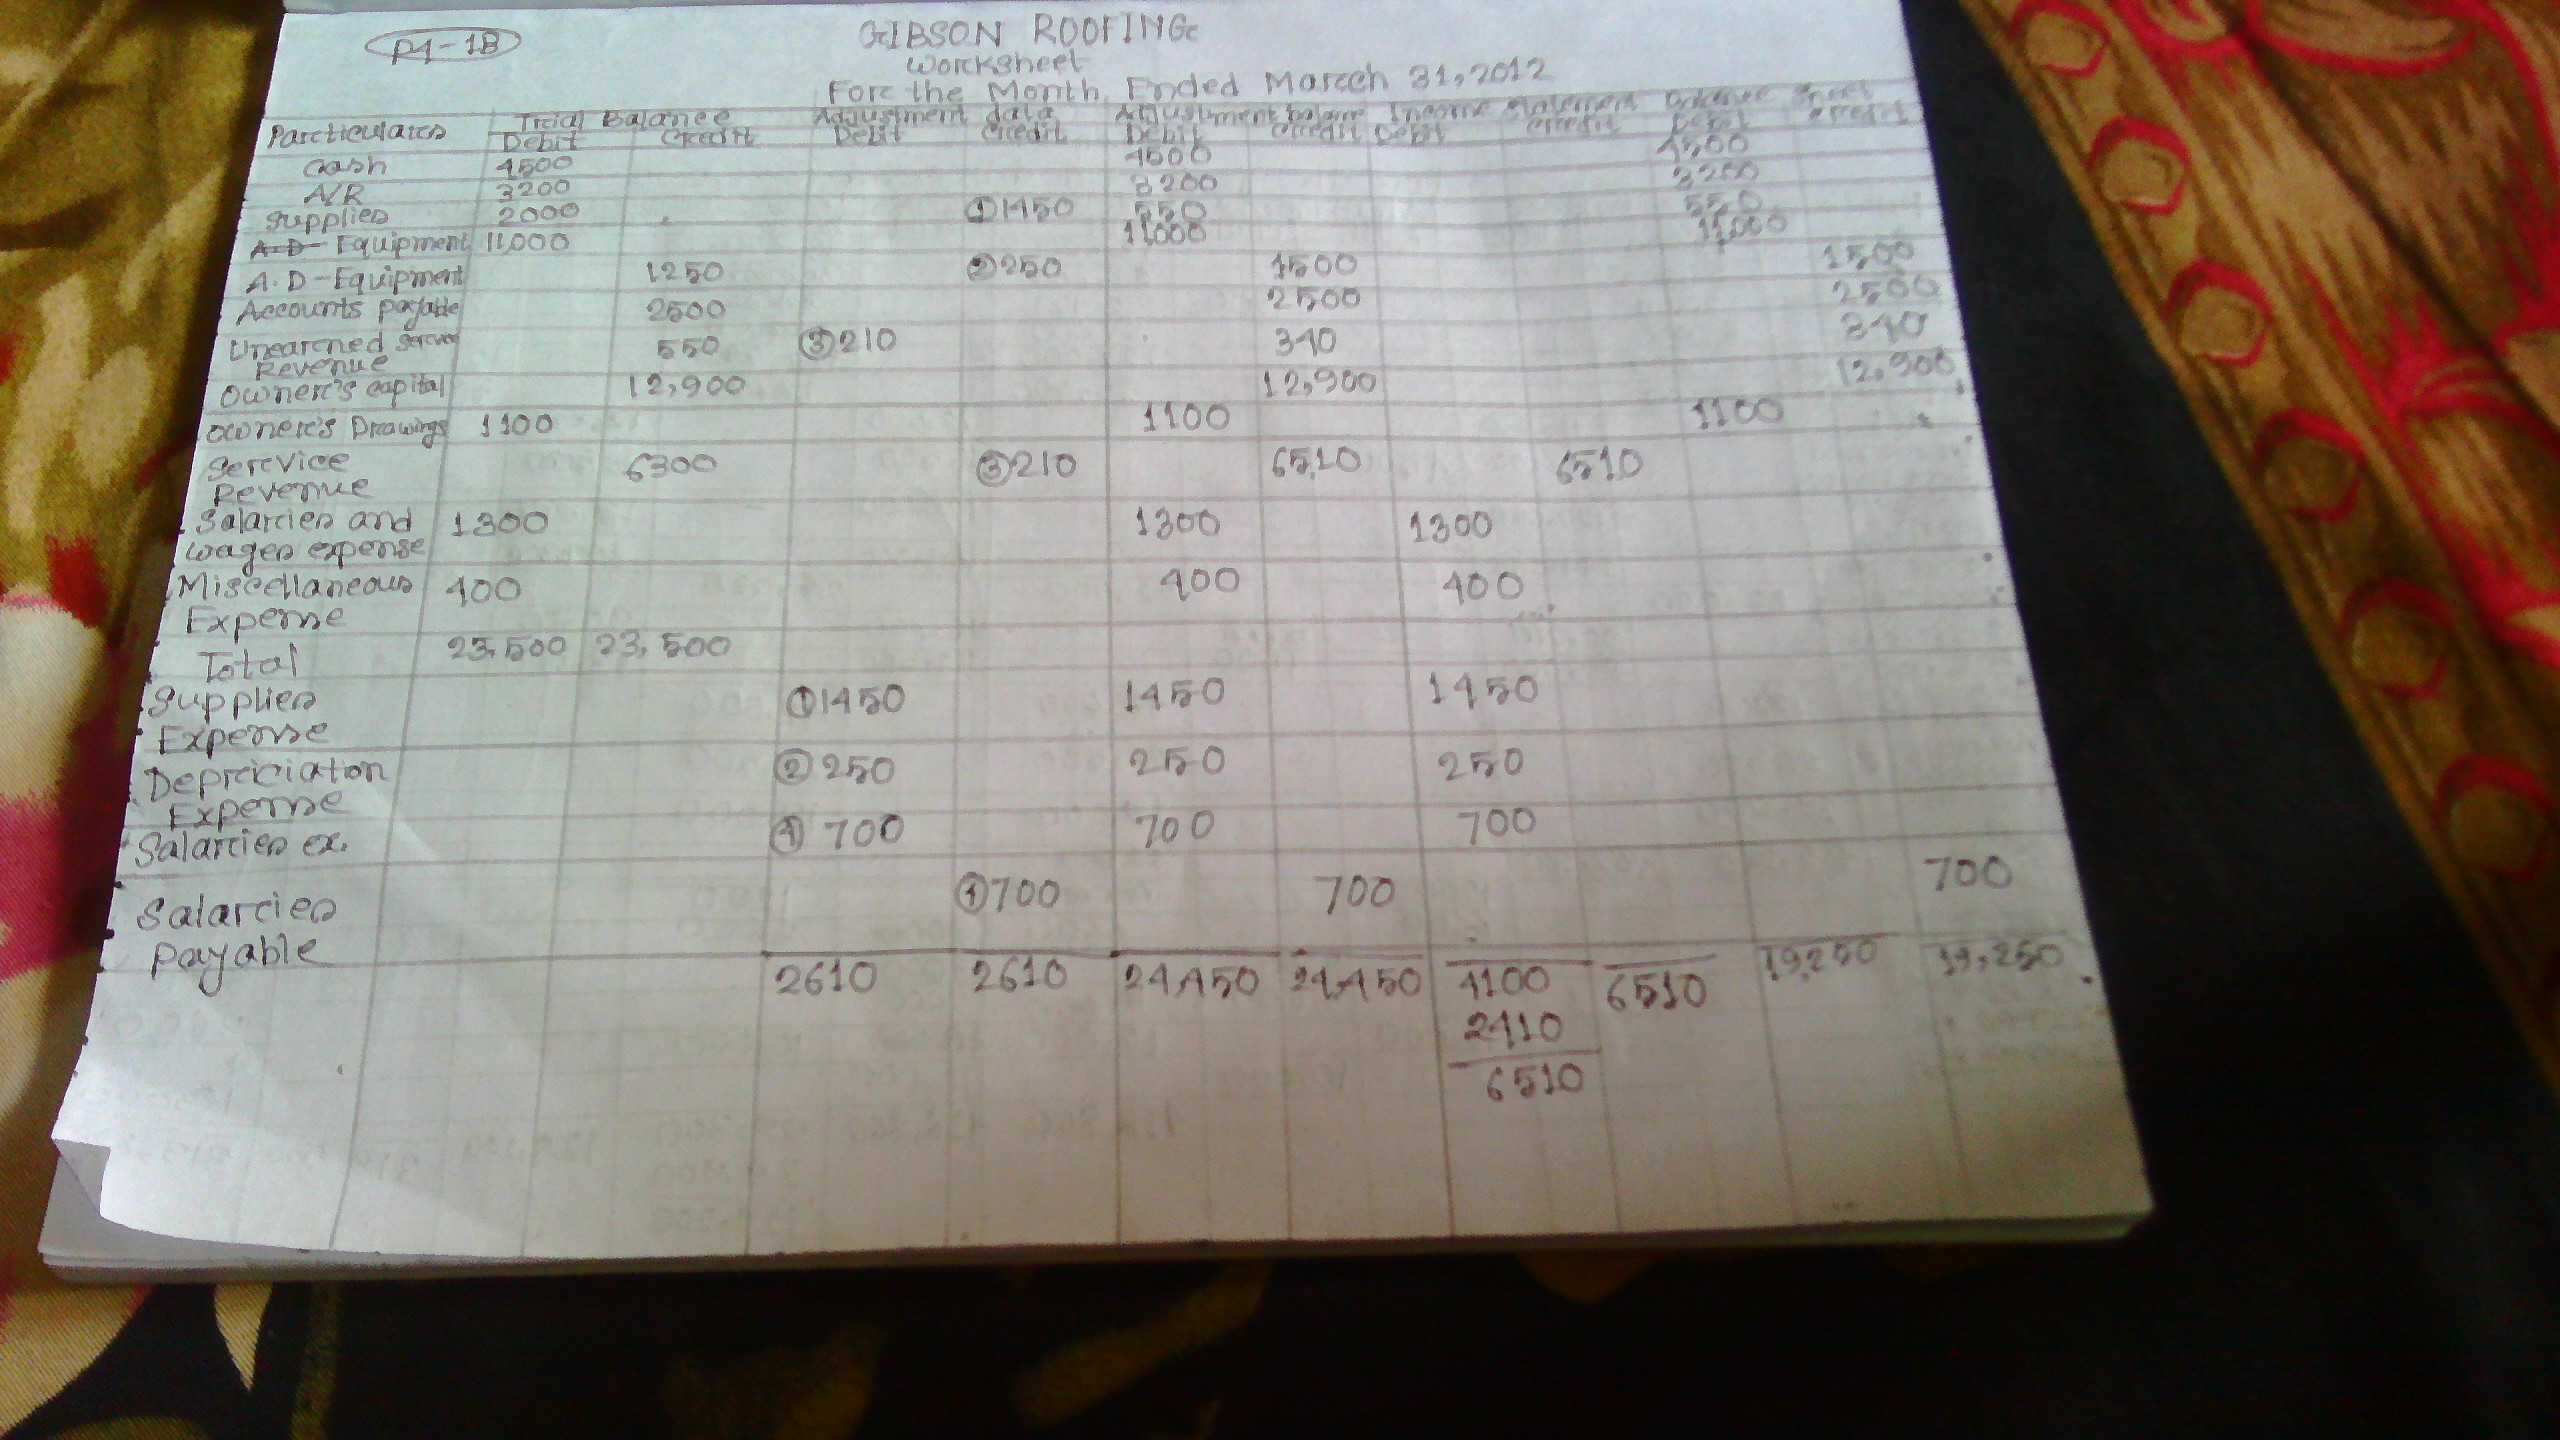 P4-1B
GIBSON ROOFING
Worcksheet
Forc the Month Ended Marcch 31, 2012
Parcticularcs Trcial Balance Adjustment data Adjustment balance Income statement Balance Sheet
Debit Credit Debit Credit Debit Credit Debit Credit Debit Credit
Cash 4500 4500 4500
A/R 3200 3200 3200
Supplies 2000 ①1450 550 550
A.D- Equipment 11,000 11000 11,000
A.D-Equipment 1250 ②250 1500 1500
Accounts payable 2500 2500 2500
Unearcned
Revenue 550 ③210 340 340
Ownerc's capital 12,900 12,900 12,900
Ownerc's Drcawings 1100 1100 1100
Sercvice
Revenue 6300 ③210 6510 6510
Salarcies and
wages expense 1300 1300 1300
Miscellaneous
Expense 400 400 400
Total 23,500 23,500
Supplies
Expense ①1450 1450 1450
Deprciciation
Expense ②250 250 250
Salarcies ex. ④700 700 700
Salarcies
payable ④700 700 700
2610 2610 24,450 24,450 4100 6510 19,250 19,250
2410
6510